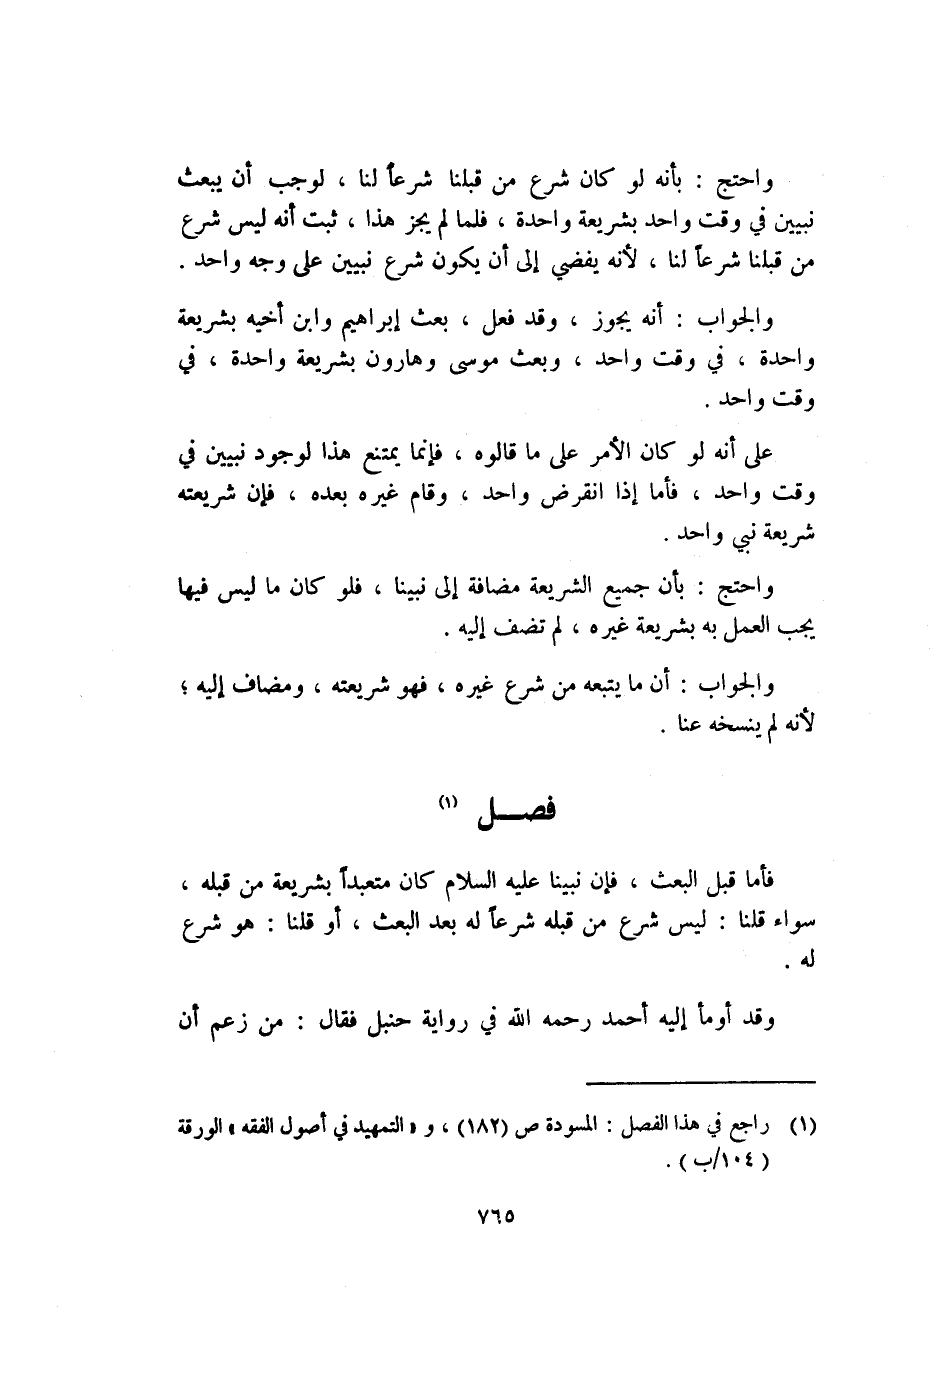 واحتج : بأنه لو كان شرع من قبلنا شرعاً لنا ، لوجب أن يبعث
نبيين في وقت واحد بشريعة واحدة ، فلما لم يجز هذا ، ثبت أنه ليس شرع
من قبلنا شرعاً لنا ، لأنه يفضي إلى أن يكون شرع نبيين على وجه واحد .
والجواب : أنه يجوز ، وقد فعل ، بعث إبراهيم وابن أخيه بشريعة
واحدة ، في وقت واحد ، وبعث موسى وهارون بشريعة واحدة ، في
وقت واحد .
على أنه لو كان الأمر على ما قالوه ، فإنما يمتنع هذا لوجود نبيين في
وقت واحد ، فأما إذا انقرض واحد ، وقام غيره بعده ، فإن شريعته
شريعة نبي واحد .
واحتج : بأن جميع الشريعة مضافة إلى نبينا ، فلو كان ما ليس فيها
يجب العمل به بشريعة غيره ، لم تضف إليه .
والجواب : أن ما يتبعه من شرع غيره ، فهو شريعته ، ومضاف إليه ؛
لأنه لم ينسخه عنا .
فصــل (١)
فأما قبل البعث ، فإن نبينا عليه السلام كان متعبداً بشريعة من قبله ،
سواء قلنا : ليس شرع من قبله شرعاً له بعد البعث ، أو قلنا : هو شرع
له .
وقد أومأ إليه أحمد رحمه الله في رواية حنبل فقال : من زعم أن
(١) راجع في هذا الفصل : المسودة ص (١٨٢) ، و « التمهيد في أصول الفقه » الورقة
( ١٠٤/ب ) .
٧٦٥